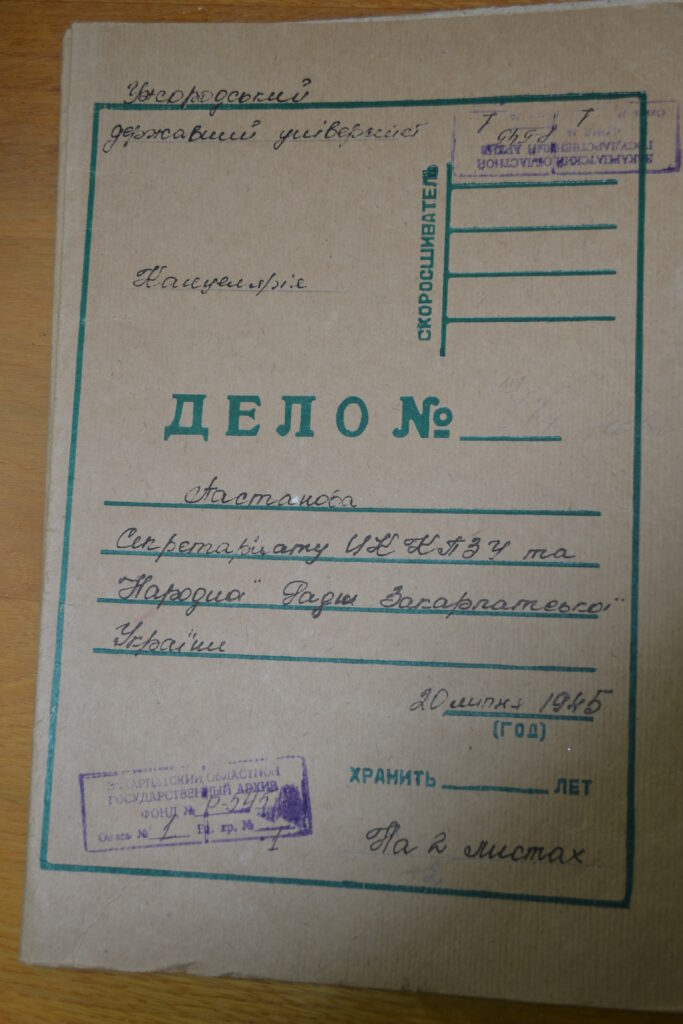 Ужгородський
державний університет
ЗАКАРПАТСКИЙ ОБЛАСТНОЙ
ГОСУДАРСТВЕННЫЙ АРХИВ
СКОРОСШИВАТЕЛЬ
Канцелярія
ДЕЛО №
Постанова
Секретаріату ЦК КПЗУ та
Народної Ради Закарпатської
України
20 липня 1945
(ГОД)
ХРАНИТЬ ЛЕТ
ЗАКАРПАТСКИЙ ОБЛАСТНОЙ
ГОСУДАРСТВЕННЫЙ АРХИВ
ФОНД №
Опись № 1 Ед. хр. № 1
На 2 листах